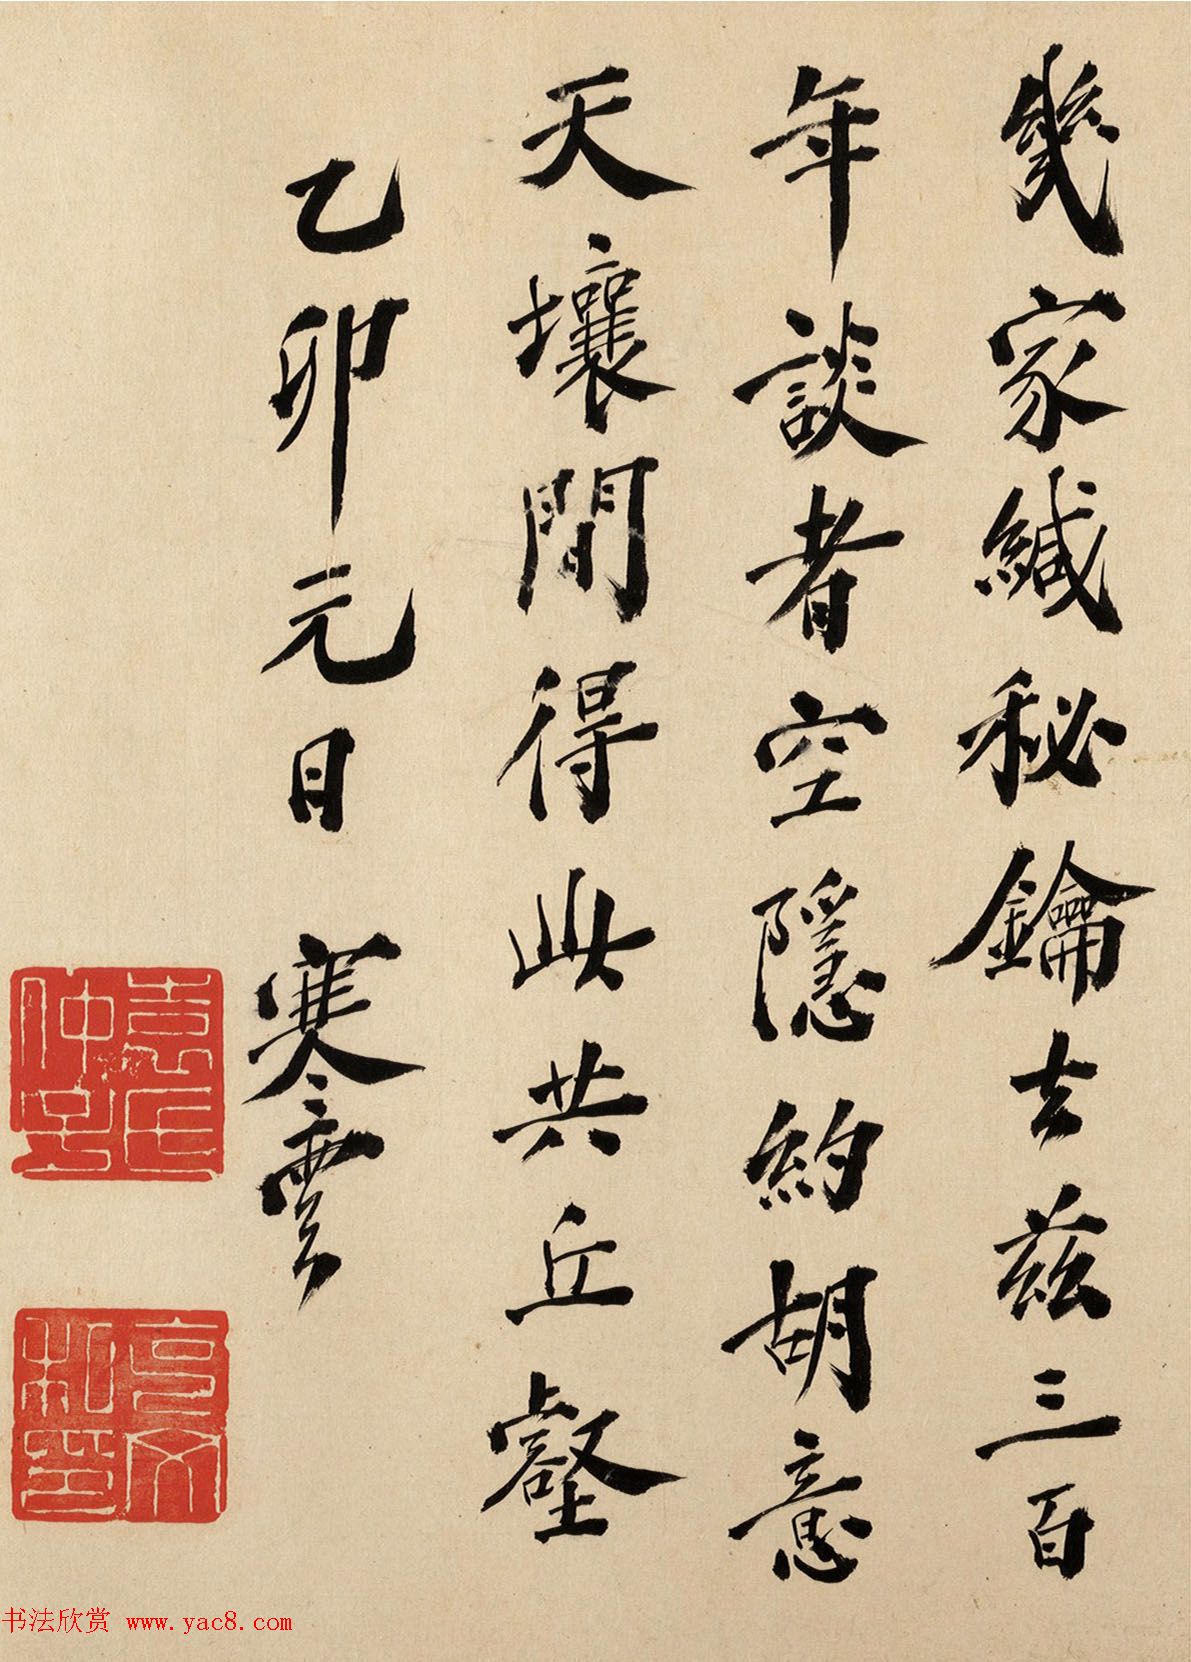 幾家緘秘鑰去茲三百
年談者空隱約胡意
天壤間得此共丘壑
乙卯元日 寒雲
袁氏仲子
克文私印
书法欣赏 www.yac8.com